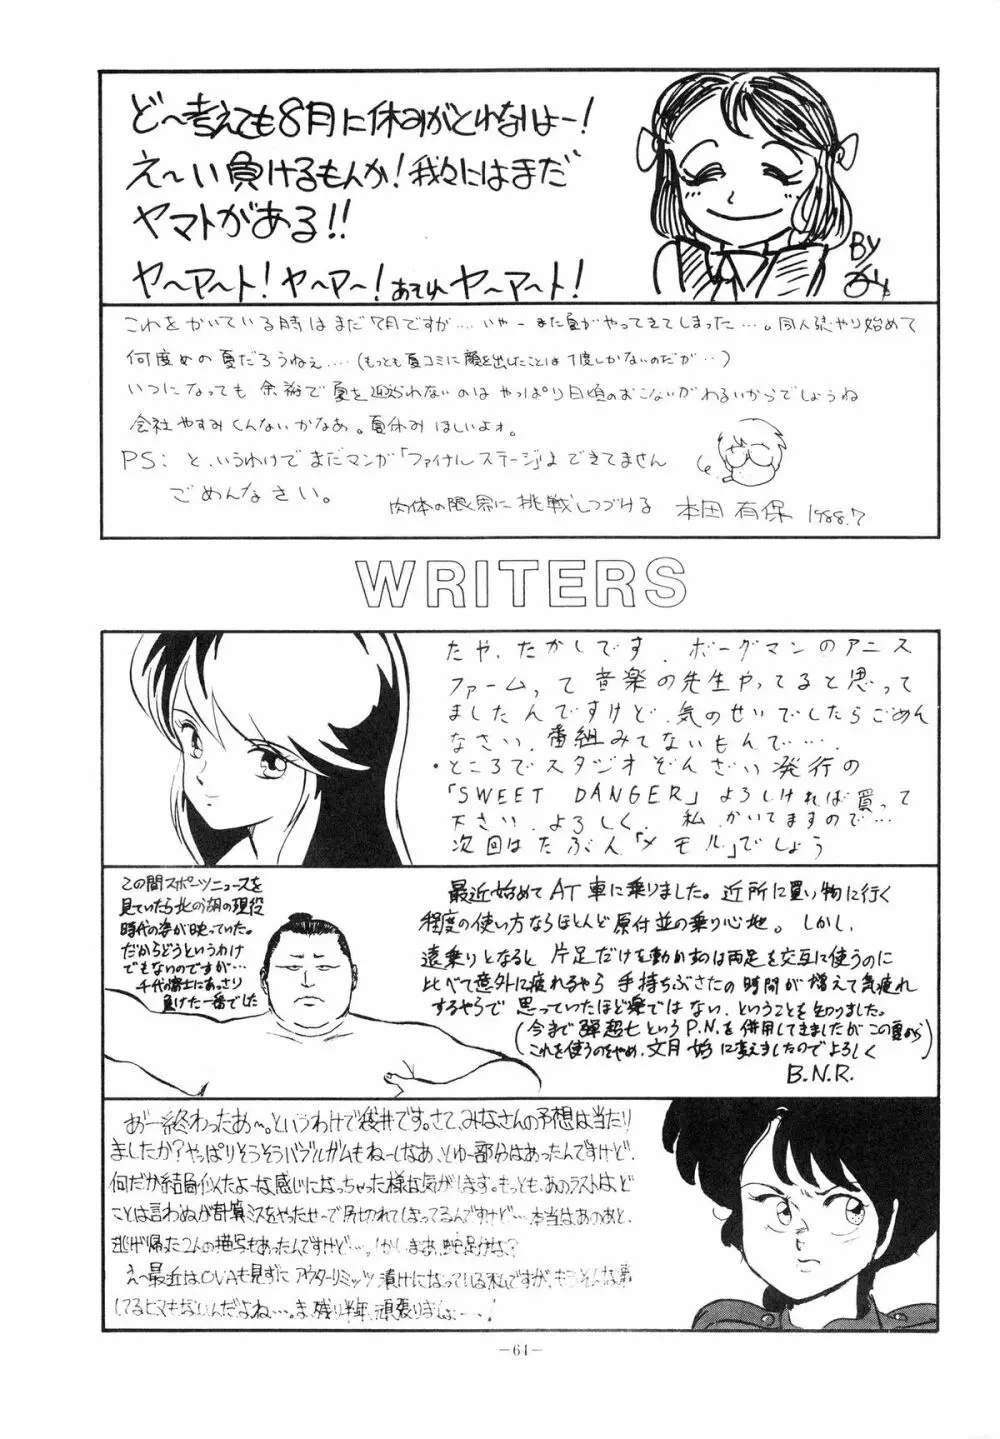 ど〜考えても8月に休みがとれないよー!
え〜い負けるもんか!我々にはまだ
ヤマトがある!!
ヤ〜ア〜ト!ヤ〜ア〜!あてれヤ〜ア〜ト!
BY
これをかいている時はまだ7月ですが……いやーまた夏がやってきてしまった…。同人誌やり始めて
何度めの夏だろうねぇ……(もっとも夏コミに顔を出したことは1度しかないのだが…)
いつになっても余裕で夏を迎えられないのはやっぱり日頃のおこないがわるいからでしょうね
会社やすみくんないかなあ。夏休みほしいよォ。
PS:と、いうわけでまだマンガ「ファイナルステージ」はできてません
ごめんなさい。
肉体の限界に挑戦しつづける 本田 有保 1988.7
WRITERS
たや、たかしです、ボーグマンのアニス
ファームって音楽の先生やってると思って
ましたんですけど、気のせいでしたらごめん
なさい、番組みてないもんで….
・ところでスタジオぞんざい発行の
「SWEET DANGER」よろしければ買って
下さい、よろしく、私、かいてますので…
次回はたぶん「メモル」でしょう
この間スポーツニュースを
見ていたら北の湖の現役
時代の姿が映っていた。
だからどうというわけ
でもないのですが…
千代の富士にあっさり
負けた一番でした
最近始めてAT車に乗りました。近所に買い物に行く
程度の使い方ならほとんど原付並の乗り心地。しかし、
遠乗りとなると片足だけを動かすのは両足を交互に使うのに
比べて意外に疲れるやら手持ちぶさたの時間が増えて気疲れ
するやらで思っていたほど楽ではない、ということを知りました。
(今まで弾超七というP.N.を併用してきましたがこの夏から)
(これを使うのをやめ、文月 始に変えましたのでよろしく
B.N.R.
あ゛ー終わったあ〜。というわけで袋井です。さて、みなさんの予想は当たり
ましたか?やっぱりそうそうバブルガムもねーしなあ、とゆー部分はあったんですけど、
何だか結局似たよーな感じになっちゃった様な気がします。もっとも、あのラストは、ど
ことは言わぬが計算ミスをやったせーで尻切れてしまってるんですけど…本当はあのあと、
逃げ帰った2人の描写もあったんですけど…。しかしまあ、蛇足かな?
え〜最近はOVAも見ずにアウターリミッツ漬けになっている私ですが、もうそんな事
してるヒマもないんだよね…ま、残り半年、頑張りましょ——!
—64—